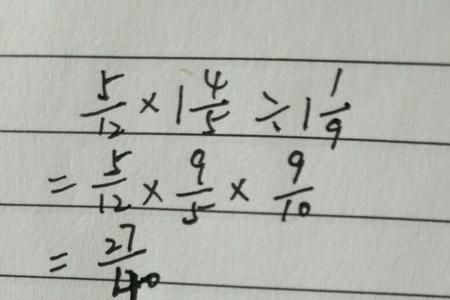 5/12 × 1 4/5 ÷ 1 1/9
= 5/12 × 9/5 × 9/10
= 27/40